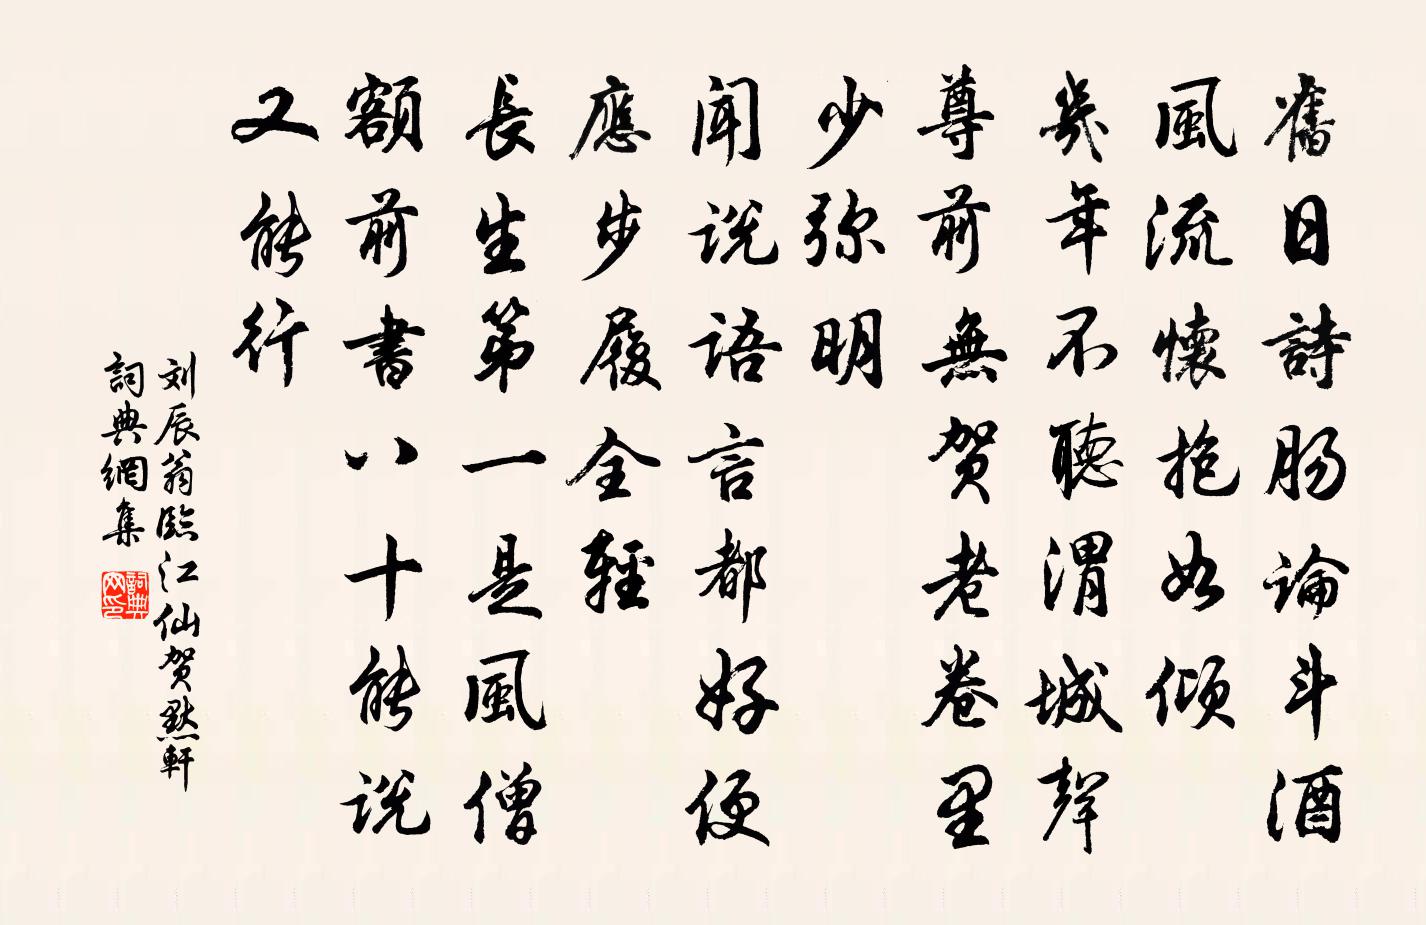 舊日詩肠論斗酒
風流懷抱如傾
幾年不聽渭城聲
尊前無贺老
卷里少弥明
聞説語言都好
便應步履全輕
長生第一是風僧
額前書八十
能説又能行
刘辰翁臨江仙贺默軒
詞典網集
詞典网印